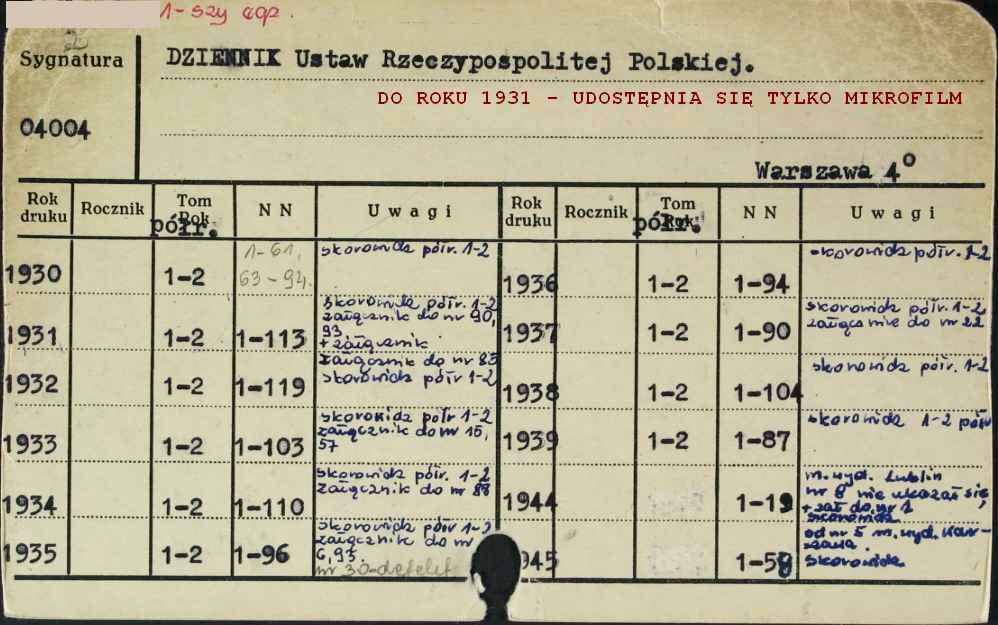 1-szy egz.
2
Sygnatura
04004
DZIENNIK Ustaw Rzeczypospolitej Polskiej.
DO ROKU 1931 - UDOSTĘPNIA SIĘ TYLKO MIKROFILM
Warszawa 4°
Rok druku Rocznik Tom Rok półr. N N Uwagi Rok druku Rocznik Tom półr. N N Uwagi
1930 1-2 1-61, 63-94. skorowidz półr. 1-2
1931 1-2 1-113 skorowidz półr. 1-2
załącznik do nr 90,
93
+ załącznik
1932 1-2 1-119 załącznik do nr 83
skorowidz półr 1-2
1933 1-2 1-103 skorowidz półr 1-2
załącznik do nr 15,
57
1934 1-2 1-110 skorowidz półr. 1-2
załącznik do nr 88
1935 1-2 1-96 skorowidz półr 1-2
załącznik do nr
6, 93.
nr 30 defekt
1936 1-2 1-94 skorowidz półr. 1-2
1937 1-2 1-90 skorowidz półr. 1-2
załącznik do nr 22
1938 1-2 1-104 skorowidz półr. 1-2
1939 1-2 1-87 skorowidz 1-2 półr
1944 1-19 m. wyd. Lublin
nr 8 nie ukazał się,
+ zał do nr 1
skorowidz
945 1-59 od nr 5 m. wyd. War-
szawa.
skorowidz